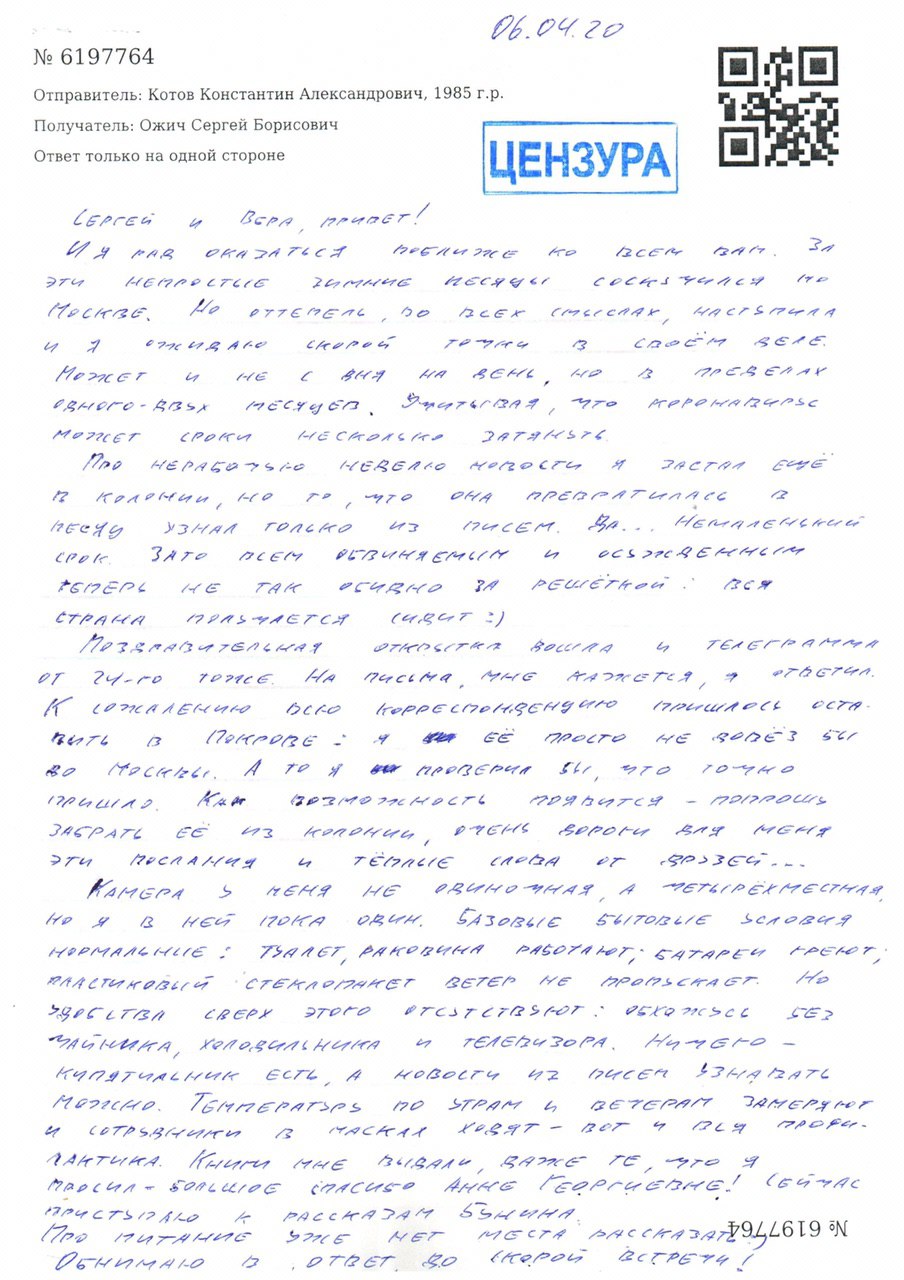 06.04.20
№ 6197764
Отправитель: Котов Константин Александрович, 1985 г.р.
Получатель: Ожич Сергей Борисович
Ответ только на одной стороне
ЦЕНЗУРА
Сергей и Вера, привет!
И я рад оказаться поближе ко всем вам. За
эти непростые зимние месяцы соскучился по
Москве. Но оттепель, во всех смыслах, наступила
и я ожидаю скорой точки в своём деле.
Может и не с дня на день, но в пределах
одного-двух месяцев. Учитывая, что коронавирус
может сроки несколько затянуть.
Про нерабочую неделю новости я застал ещё
в колонии, но то, что она превратилась в
месяц узнал только из писем. Да... Немаленький
срок. Зато всем обвиняемым и осужденным
теперь не так обидно за решёткой: вся
страна получается сидит :)
Поздравительная открытка дошла и телеграмма
от 24-го тоже. На письма, мне кажется, я ответил.
К сожалению всю корреспонденцию пришлось оста-
вить в Покрове: я её просто не довёз бы
до Москвы. А то я проверил бы, что точно
пришло. Как возможность появится - попрошу
забрать её из колонии, очень дороги для меня
эти послания и тёплые слова от друзей...
Камера у меня не одиночная, а четырёхместная,
но я в ней пока один. Базовые бытовые условия
нормальные: туалет, раковина работают; батареи греют;
пластиковый стеклопакет ветер не пропускает. Но
удобства сверх этого отсутствуют: обхожусь без
чайника, холодильника и телевизора. Ничего -
кипятильник есть, а новости из писем узнавать
можно. Температуру по утрам и вечерам замеряют
и сотрудники в масках ходят - вот и вся профи-
лактика. Книги мне выдали, даже те, что я
просил - большое спасибо Анне Георгиевне! Сейчас
приступаю к рассказам Бунина.
Про питание уже нет места рассказать :)
Обнимаю в ответ, до скорой встречи!
№ 6197764